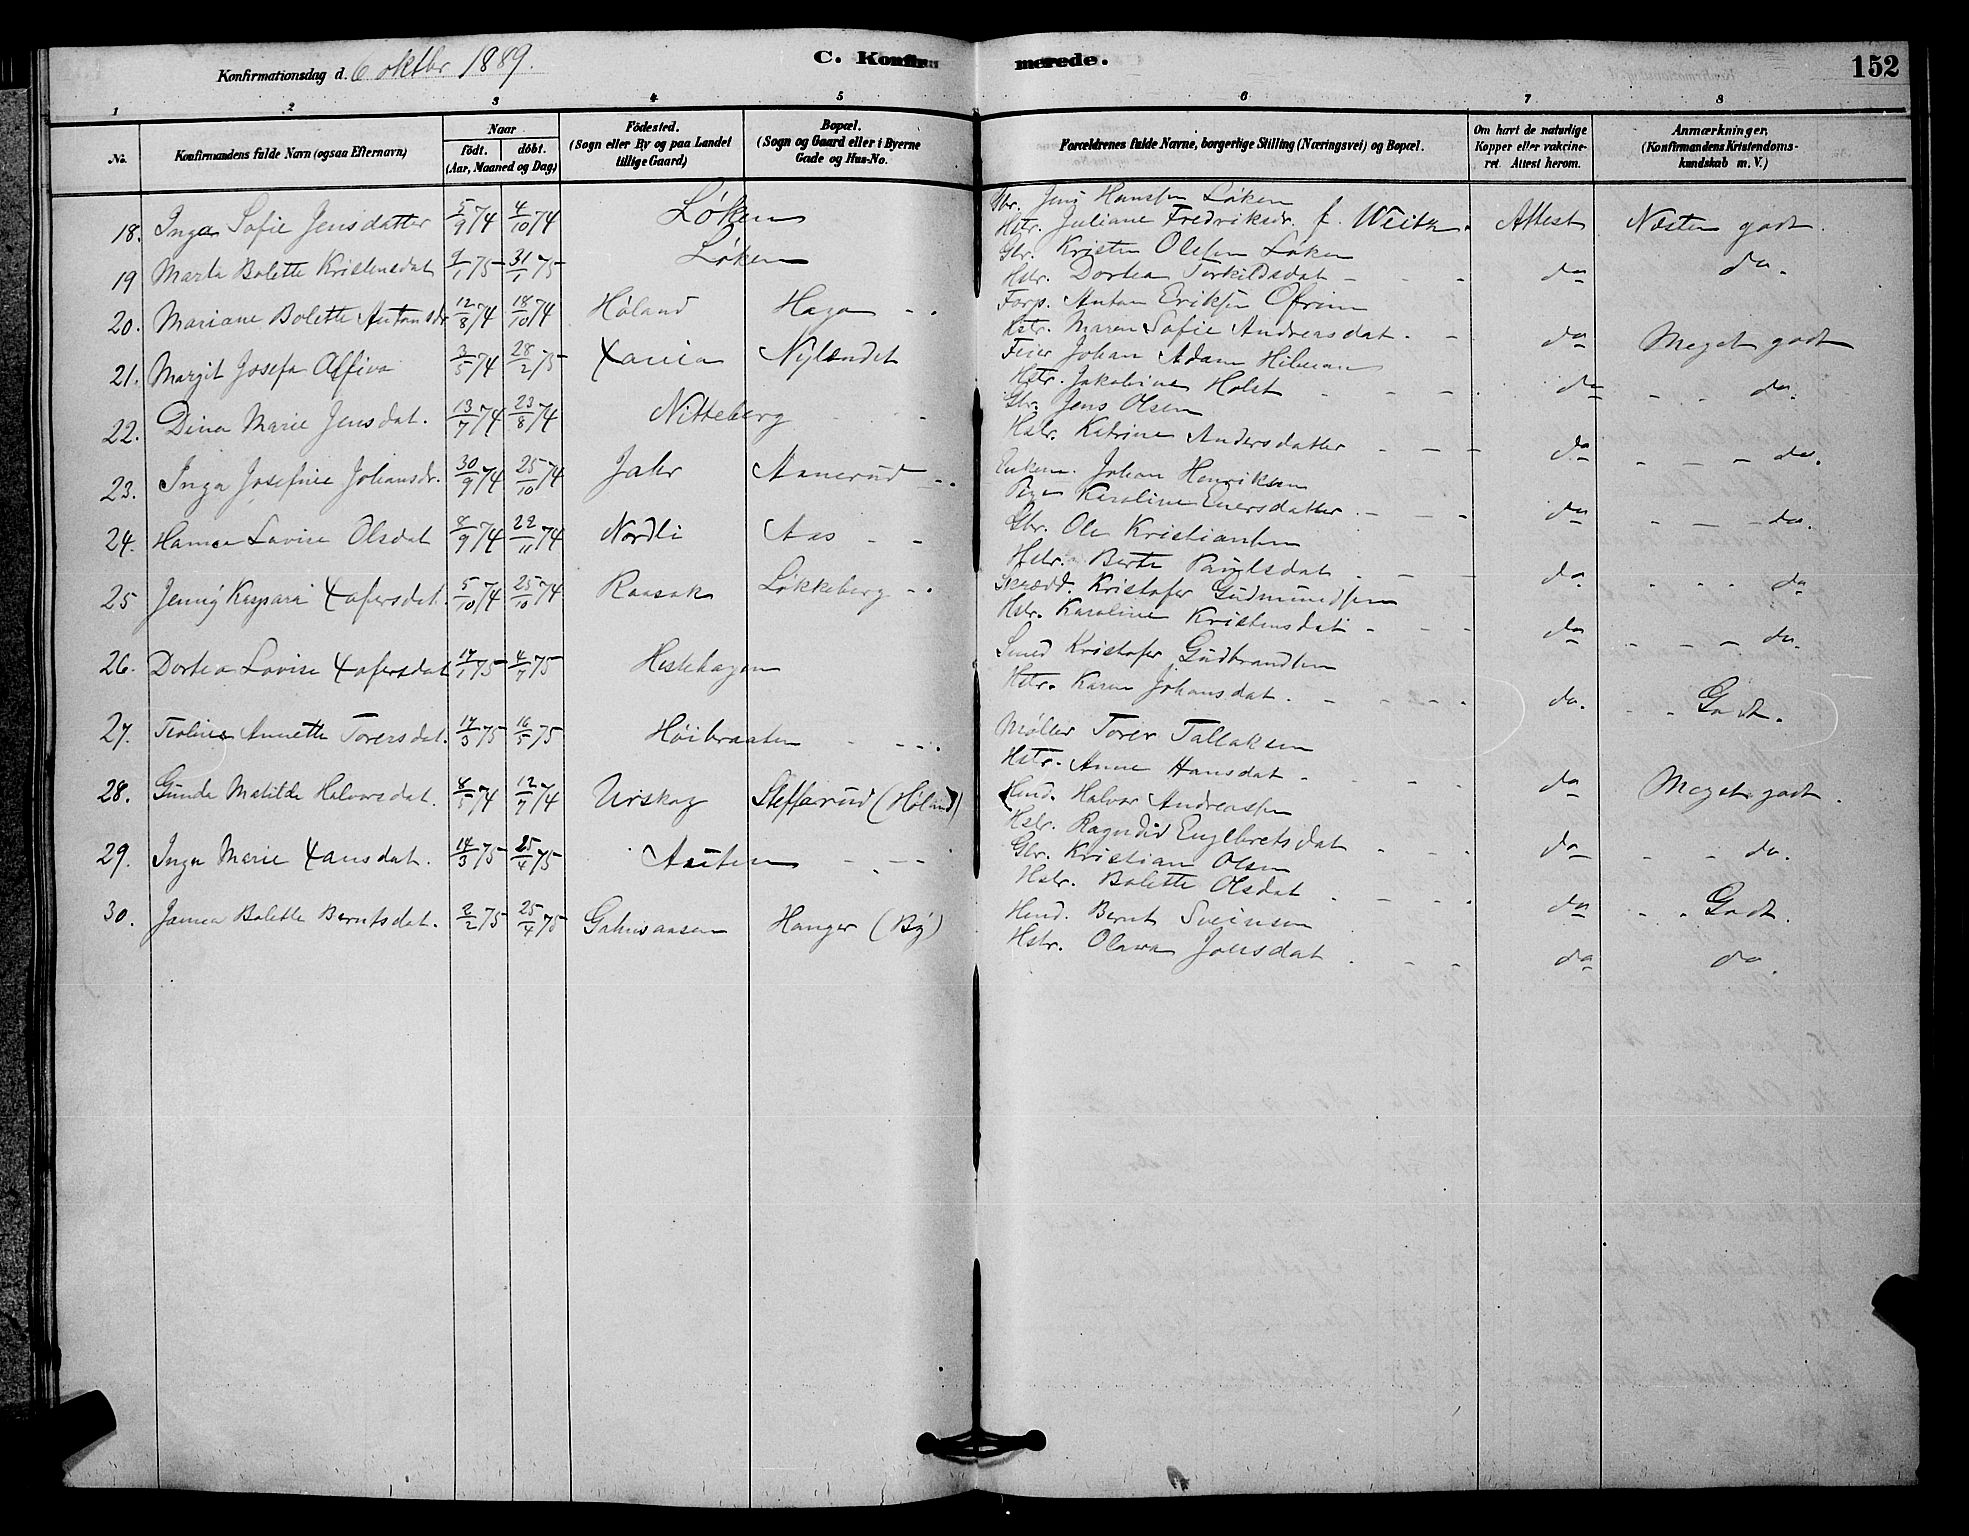 Konfirmationsdag d. 6 oktbr 1889.
C. Konfirmerede.
152
1 2 3 4 5 6 7 8
No.
Konfirmandens fulde Navn (ogsaa Efternavn)
Naar
födt. döbt.
(Aar, Maaned og Dag)
Födested.
(Sogn eller By og paa Landet
tillige Gaard)
Bopæl.
(Sogn og Gaard eller i Byerne
Gade og Hus-No.
Forældrenes fulde Navne, borgerlige Stilling (Næringsvei) og Bopæl.
Om havt de naturlige
Kopper eller vakcine-
ret. Attest herom.
Anmærkninger,
(Konfirmandens Kristendoms-
kundskab m. V.)
18. Inga Sofie Jensdatter 5/9 74 4/10 74 Løken Gbr. Jens Hanssen Løken
Hstr. Juliane Fredriksdr. f. Attest Næsten godt.
19 Marta Bolette Kristensdat 9/1 75 31/1 75 Løken Gbr. Kristen Olsen Løken
Hstr. Dortea Torkildsdat - - - do do.
20. Mariane Bolette Antonsdr 12/8 74 18/10 74 Høland Haga - . Forp. Anton Eriksen Ofrim
Hstr. Maren Sofie Andreasdat. - do Meget godt
21. Margit Josefa Alfiva 3/5 74 28/2 75 Xania Nylændet Feier Johan Adam Hilman
Hstr. Jakobine Holst - - - do - - do.
22. Dina Marie Jensdat. 13/7 74 23/8 74 Nitteberg Gbr. Jens Olsen
Hstr. Katrine Andersdatter - - - do - - - do.
23. Inga Josefine Johansdr. 30/9 74 25/10 74 Jahr Aanerud - . Enkem. Johan Henriksen
Pige Karoline Enersdatter. - - - do - - - do.
24. Hanna Lovise Olsdat 8/9 74 22/11 74 Nordli Aas - - Gbr. Ole Kristiansen
Hstr. Berte Paulsdat. - - do . . . do
25 Jenny Kaspara Xofersdat. 5/10 74 25/10 74 Raasok Løkkeberg - . Skrædd. Kristofer Gudmundsen
Hstr. Karoline Kristensdat - - - do - - - do.
26. Dortea Lovise Xofersdat 17/1 75 4/7 75 Hestehagen Smed Kristofer Gudbrandsen
Hstr. Karen Johansdat. - - - - do. - . Godt.
27. Teoline Annette Torersdat. 17/3 75 16/5 75 Høibraaten - - - . Møller Torer Tallaksen
Hstr. Anne Hansdat - - - do Meget godt.
28. Gunda Matilde Halvorsdat. 6/5 74 12/7 74 Urskog Steffarud (Høland) Hmd. Halvor Andreassen
Hstr. Ragndid Engebretsdat - - - do - - do.
29. Inga Marie Xansdat. 14/3 75 25/4 75 Asiten - - - Gbr. Kristian Olsen
Hstr. Bolette Olsdat . - - - do . . Godt.
30. Janna Bolette Berntsdat. 2/2 75 25/4 75 Hanger (By) Hmd. Bernt Sveinsen
Hstr. Olava Jonsdat . - - - do do.